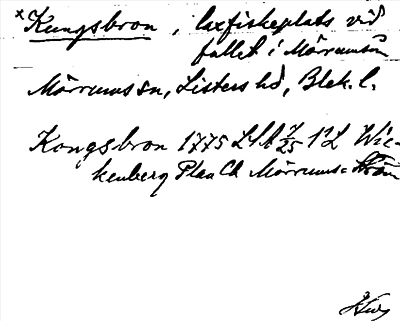 x Kungsbron, laxfiskeplats vid
fallet i Mörrumsån
Mörrums sn, Listers hd, Blek. l.
Kongsbron 1775 LSA 7/25 1:2 Wic-
kenberg Plan Ch Mörrums= Ström